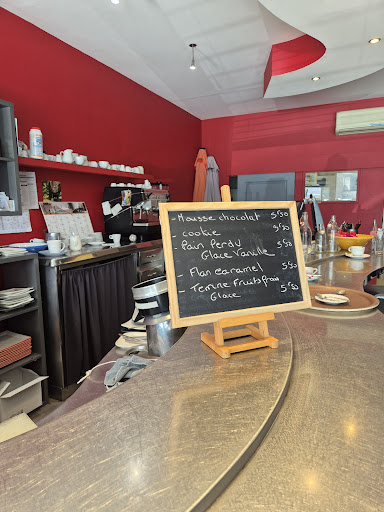 - Mousse chocolat 5/50
cookie
- Pain Perdu 5/50
Glace Vanille
- Flan caramel 5/50
- Terrine Fruits frais 5/50
Glace